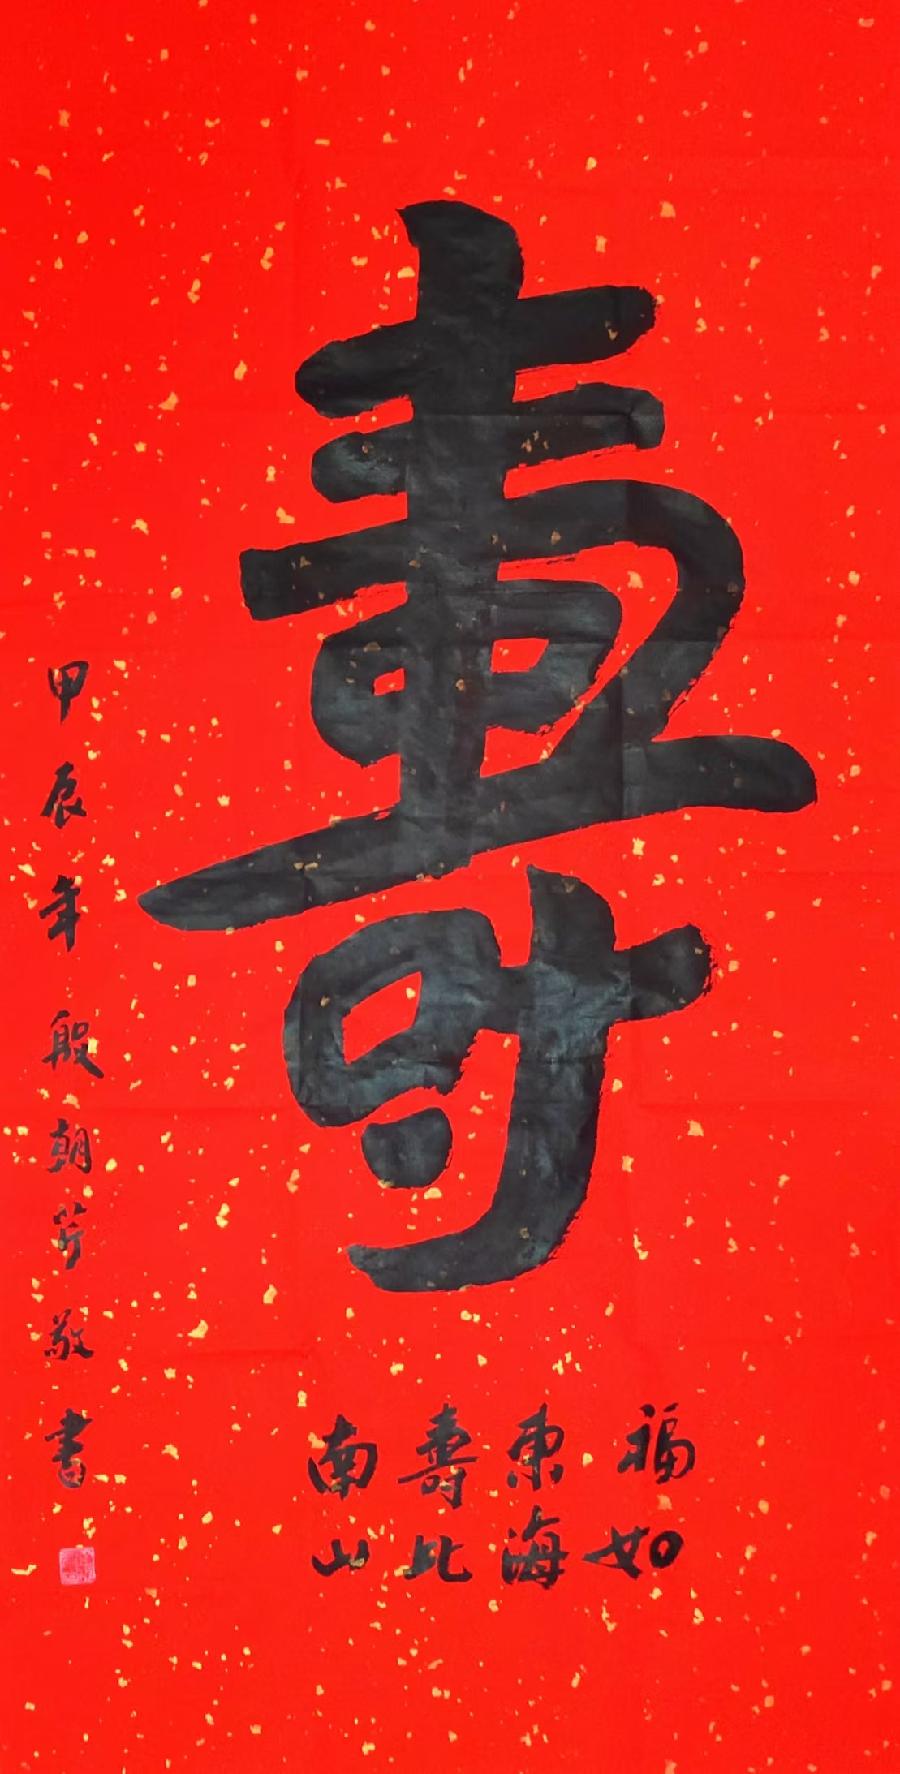 壽
福如
東海
壽比
南山
甲辰年殷朝芹敬書